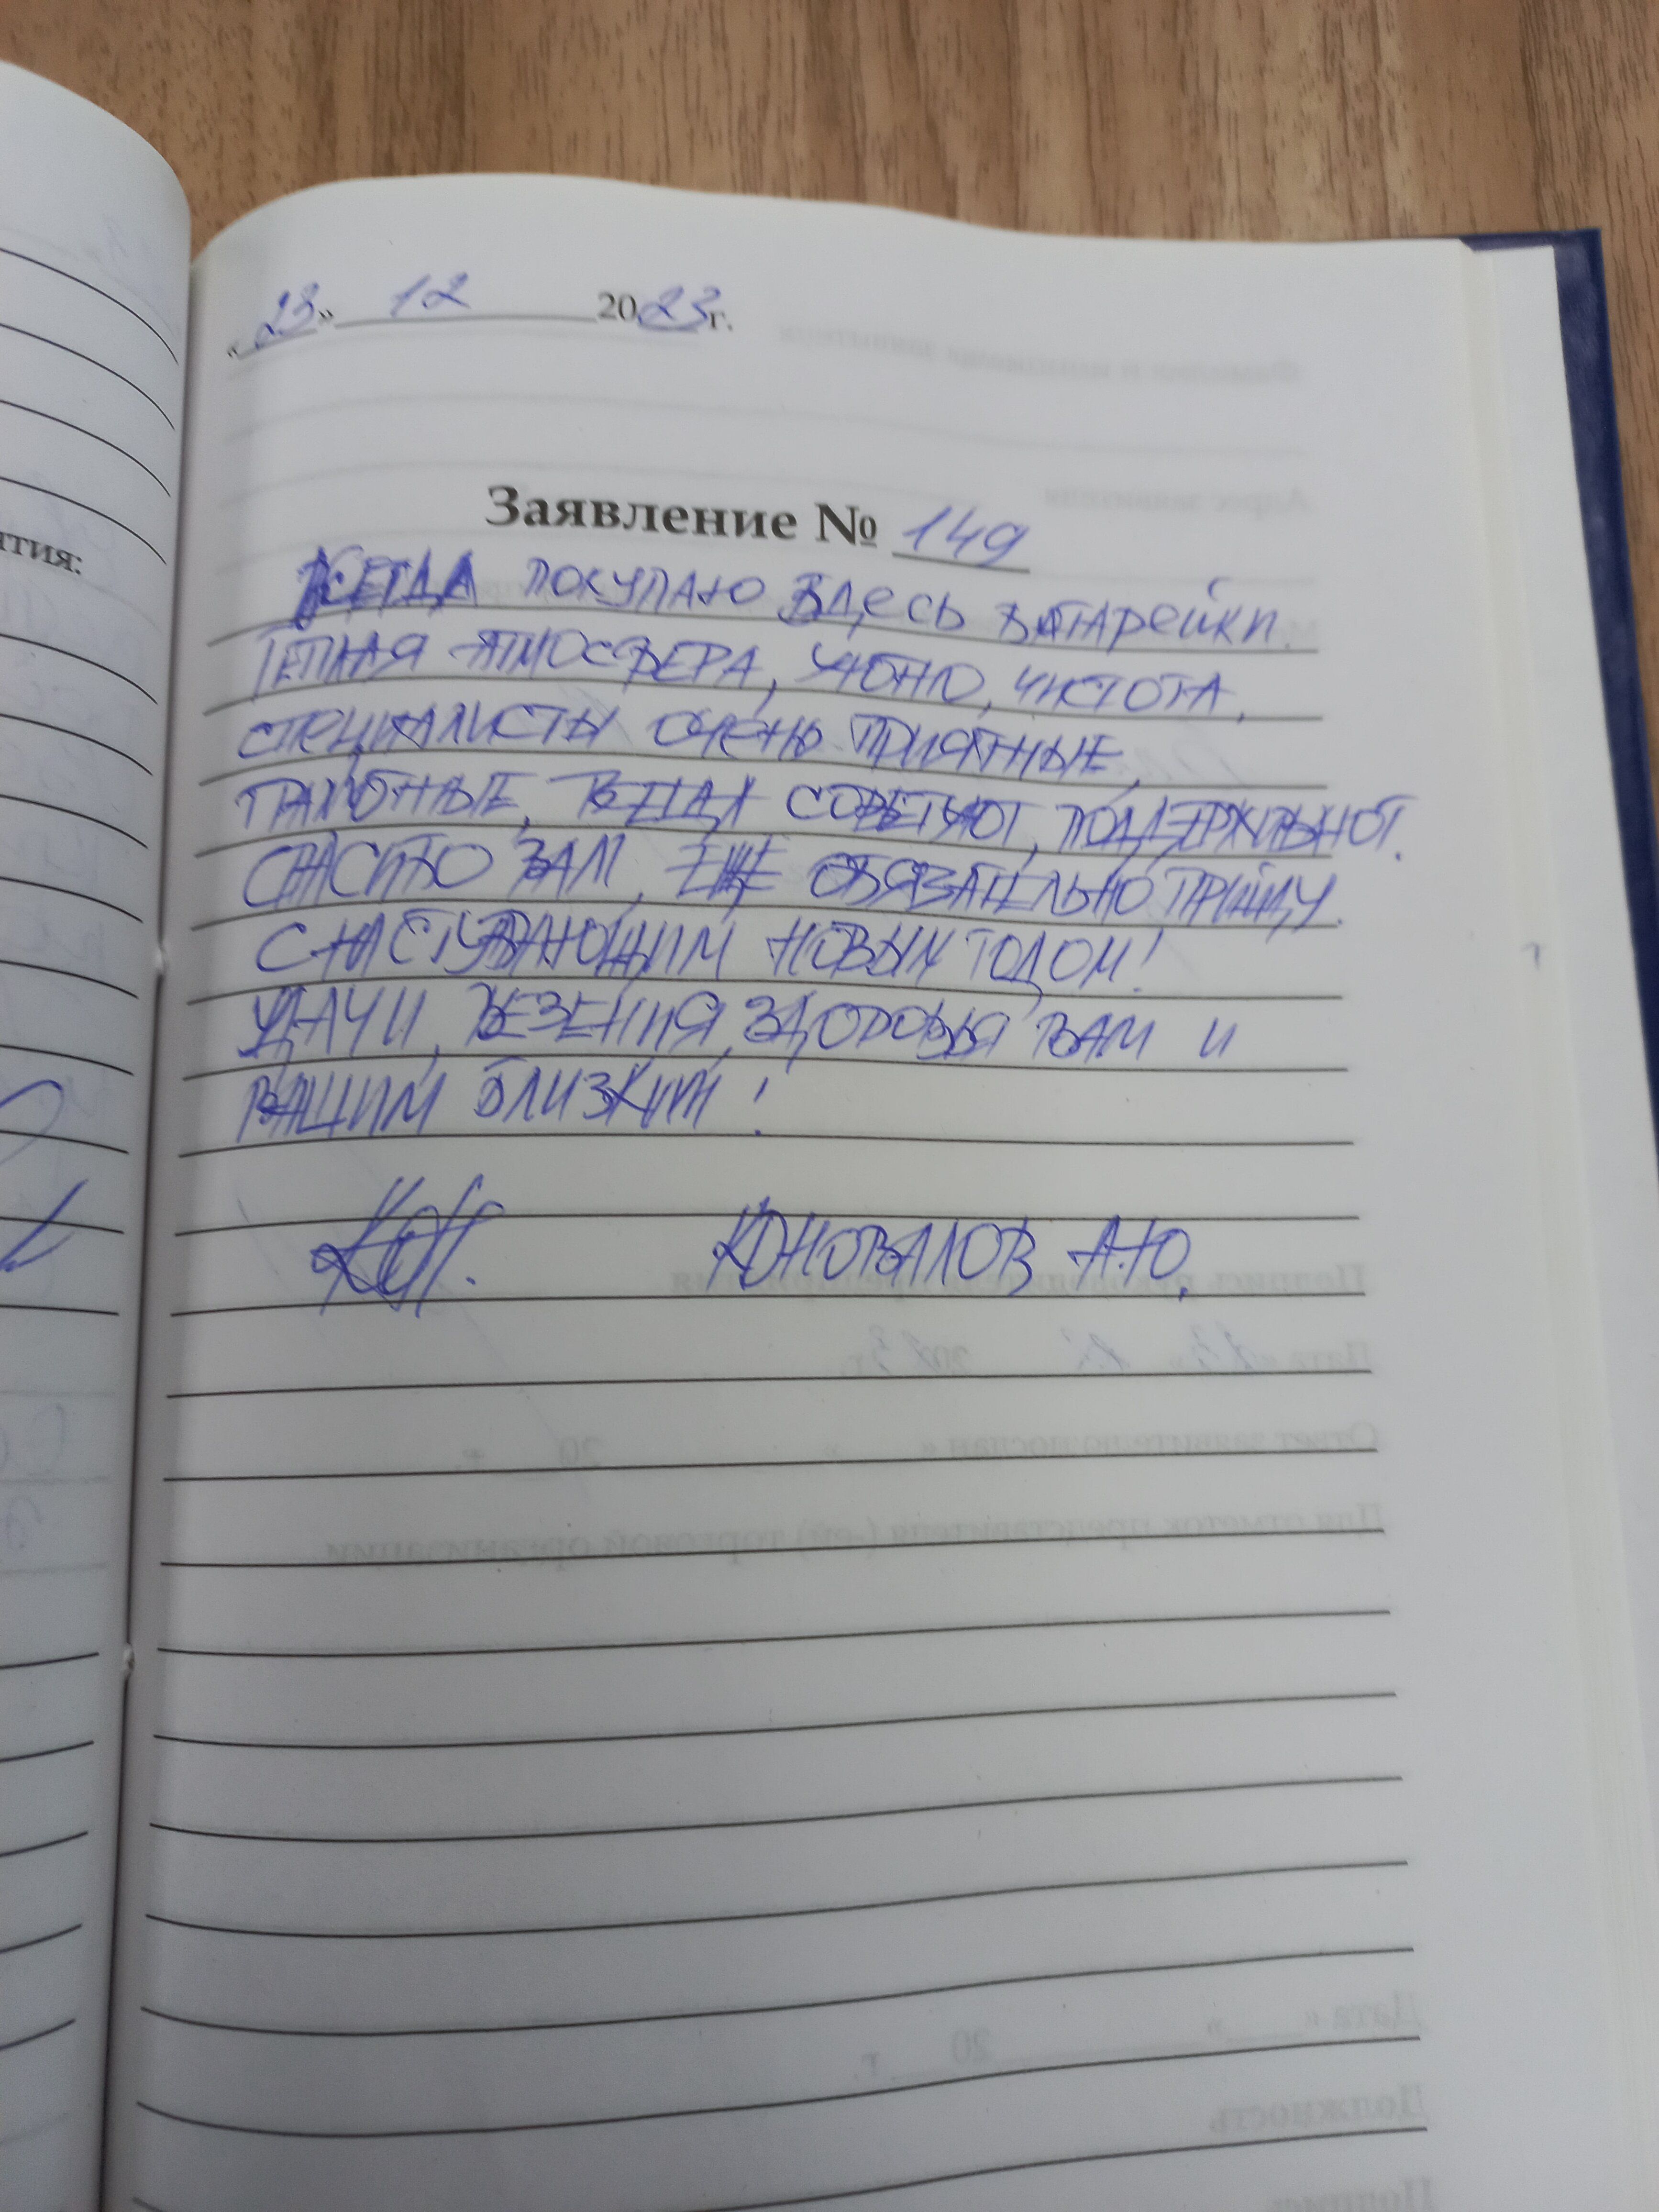 «23» 12 2023г.
Заявление № 149
ВСЕГДА ПОКУПАЮ ЗДЕСЬ БАТАРЕЙКИ.
ТЕПЛАЯ АТМОСФЕРА, УЮТНО, ЧИСТОТА,
СПЕЦИАЛИСТЫ ОЧЕНЬ ПРИЯТНЫЕ,
ГРАМОТНЫЕ, ВСЕГДА СОВЕТУЮТ, ПОДДЕРЖИВАЮТ.
СПАСИБО ВАМ, ЕЩЕ ОБЯЗАТЕЛЬНО ПРИЙДУ.
С НАСТУПАЮЩИМ НОВЫМ ГОДОМ!
УДАЧИ, ВЕЗЕНИЯ, ЗДОРОВЬЯ ВАМ И
ВАШИМ БЛИЗКИМ!
КОНОВАЛОВ А.Ю.